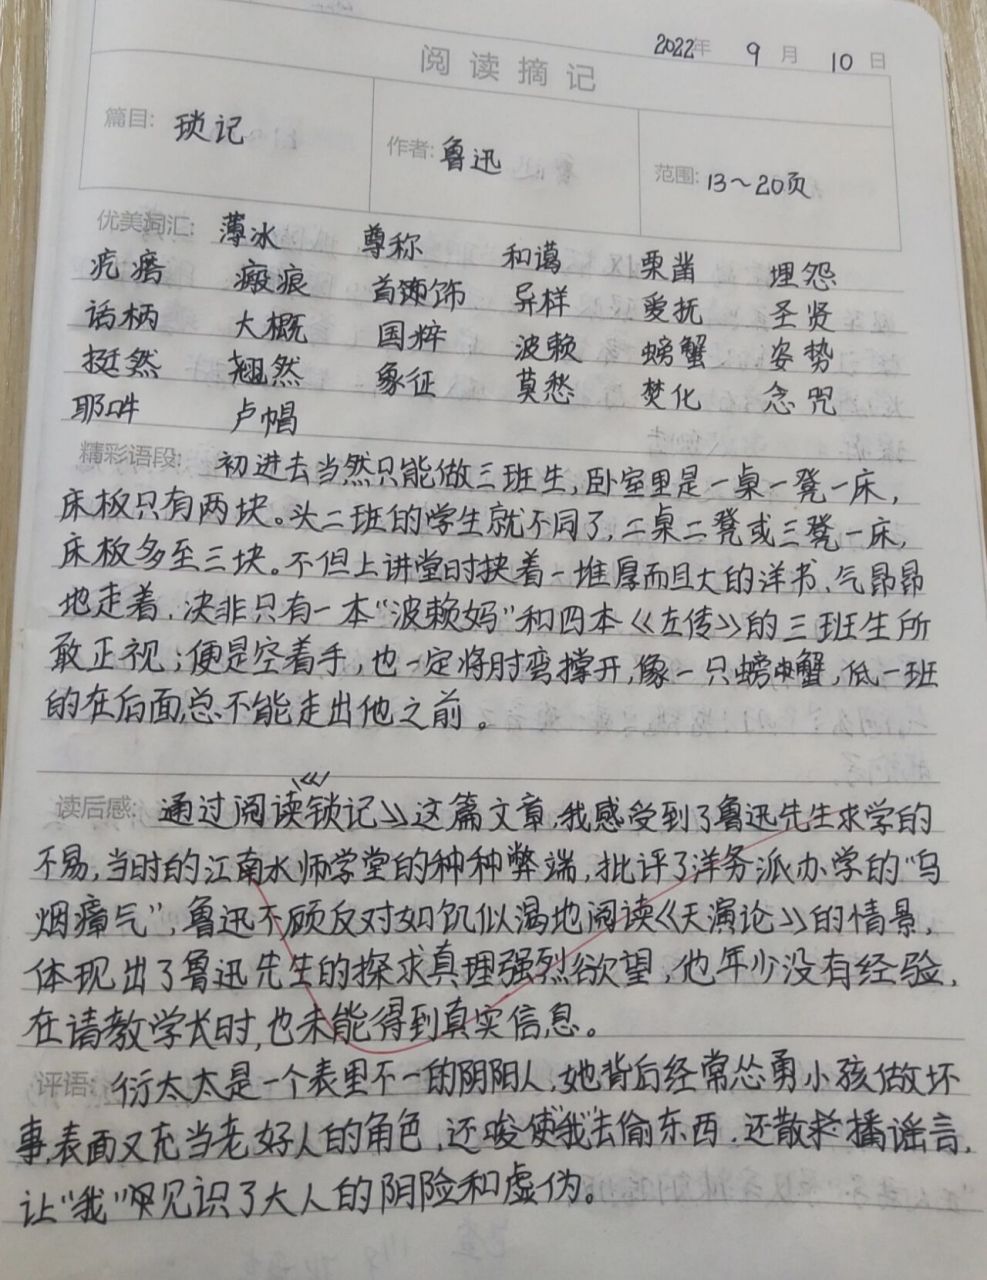 2022年 9月 10日
阅读摘记
篇目: 琐记 作者: 鲁迅 范围: 13～20页
优美词汇: 薄冰 尊称 和蔼 栗凿 埋怨
疙瘩 瘢痕 首饰 异样 爱抚 圣贤
话柄 大概 国粹 波赖 螃蟹 姿势
挺然 翘然 象征 莫愁 焚化 念咒
耶吽 卢帽
精彩语段: 初进去当然只能做三班生,卧室里是一桌一凳一床,
床板只有两块。头二班的学生就不同了,二桌二凳或三凳一床,
床板多至三块。不但上讲堂时挟着一堆厚而且大的洋书、气昂昂
地走着,决非只有一本“波赖妈”和四本《左传》的三班生所
敢正视;便是空着手,也一定将肘弯撑开,像一只螃蟹,低一班
的在后面总不能走出他之前。
读后感: 通过阅读《锁记》这篇文章,我感受到了鲁迅先生求学的
不易,当时的江南水师学堂的种种弊端,批评了洋务派办学的“乌
烟瘴气”,鲁迅不顾反对如饥似渴地阅读《天演论》的情景,
体现出了鲁迅先生的探求真理强烈欲望,他年少没有经验,
在请教学长时,也未能得到真实信息。
评语: 衍太太是一个表里不一的阴阳人,她背后经常怂勇小孩做坏
事,表面又充当老好人的角色,还唆使“我”去偷东西,还散播谣言,
让“我”见识了大人的阴险和虚伪。